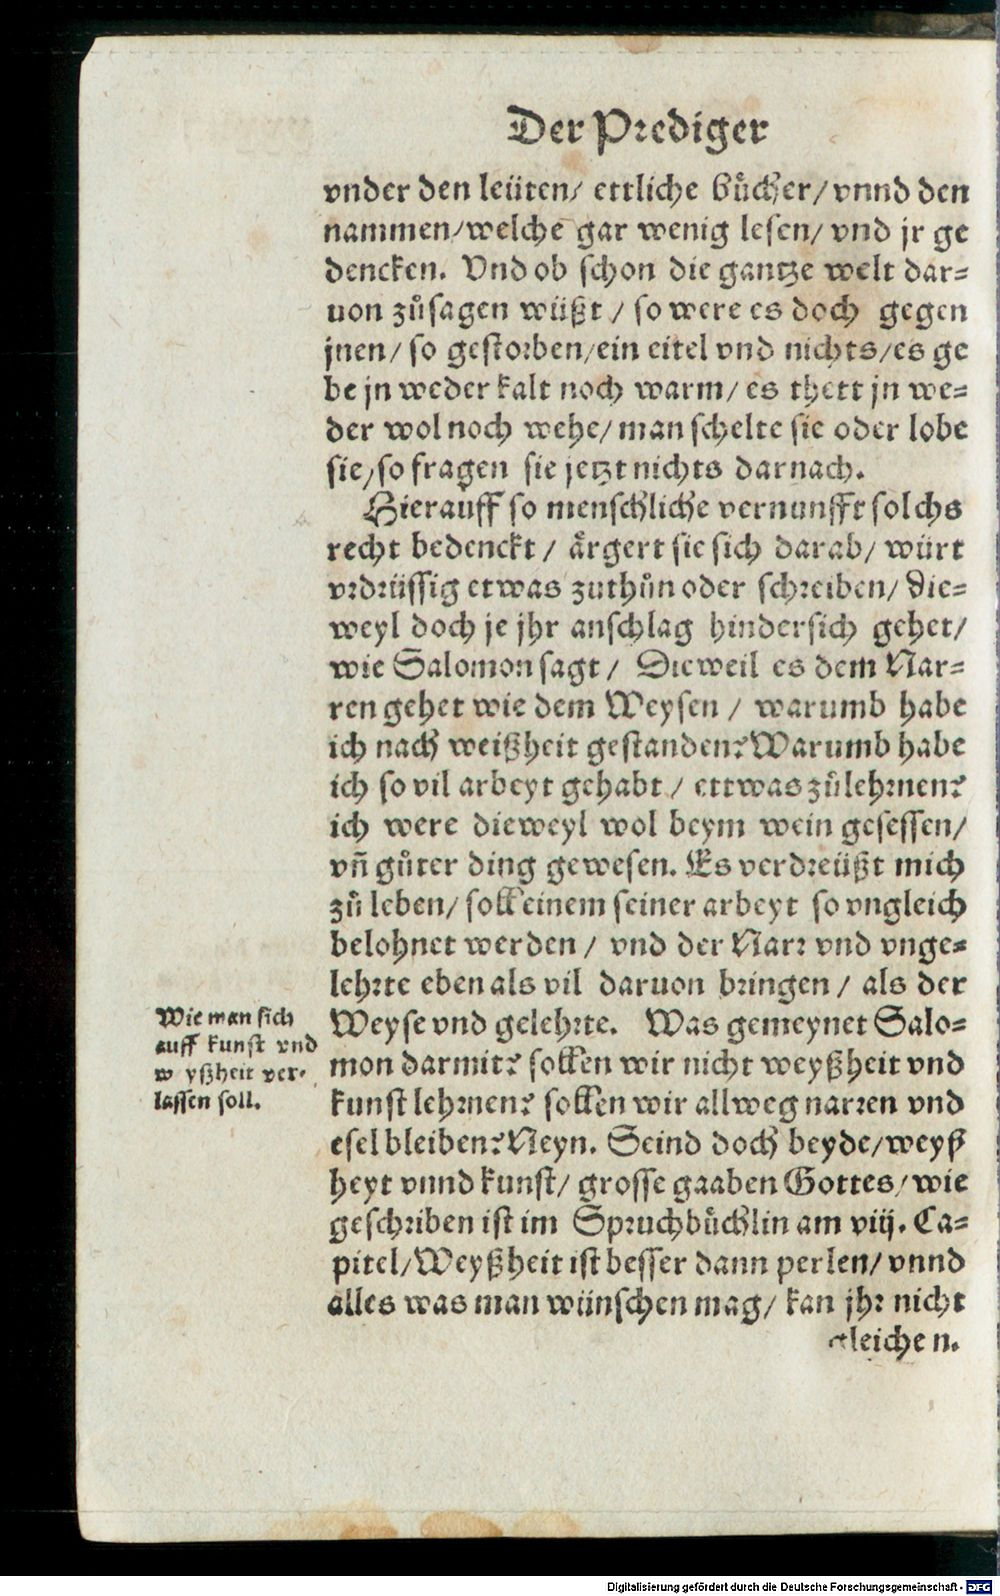 Der Prediger
vnder den leüten/ ettliche Bůcher/ vnnd den
nammen/welche gar wenig lesen/ vnd jr ge
dencken. Vnd ob schon die gantze welt dar=
uon zůsagen wüßt / so were es doch gegen
jnen/ so gestorben/ein eitel vnd nichts/es ge
be jn weder kalt noch warm/ es thett jn we=
der wol noch wehe/ man schelte sie oder lobe
sie/so fragen sie jetzt nichts darnach.
Hierauff so menschliche vernunfft solchs
recht bedenckt / ärgert sie sich darab/ würt
vrdrüssig etwas zuthůn oder schreiben/ die=
weyl doch je jhr anschlag hindersich gehet/
wie Salomon sagt / Dieweil es dem Nar=
ren gehet wie dem Weysen / warumb habe
ich nach weißheit gestanden? Warumb habe
ich so vil arbeyt gehabt / ettwas zůlehrnen?
ich were dieweyl wol beym wein gesessen/
vñ gůter ding gewesen. Es verdreüßt mich
zů leben/ soll einem seiner arbeyt so vngleich
belohnet werden / vnd der Narr vnd vnge=
lehrte eben als vil daruon bringen / als der
Weyse vnd gelehrte. Was gemeynet Salo=
mon darmit? sollen wir nicht weyßheit vnd
kunst lehrnen? sollen wir allweg narren vnd
esel bleiben? Neyn. Seind doch beyde/weyß
heyt vnnd kunst/ grosse gaaben Gottes/ wie
geschriben ist im Spruchbůchlin am viij. Ca=
pitel/Weyßheit ist besser dann perlen/ vnnd
alles was man wünschen mag/ kan jhr nicht
gleichen.
Wie man sich
auff kunst vnd
w yßheit ver-
lassen soll.
Digitalisierung gefördert durch die Deutsche Forschungsgemeinschaft - DFG